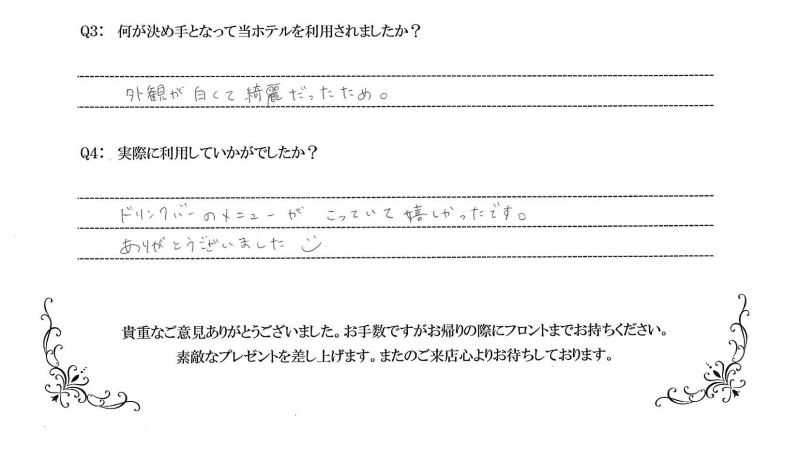 Q3: 何が決め手となって当ホテルを利用されましたか?
外観が白くて綺麗だったため。
Q4: 実際に利用していかがでしたか?
ドリンクバーのメニューが こっていて嬉しかったです。
ありがとうございました
貴重なご意見ありがとうございました。お手数ですがお帰りの際にフロントまでお持ちください。
素敵なプレゼントを差し上げます。またのご来店心よりお待ちしております。